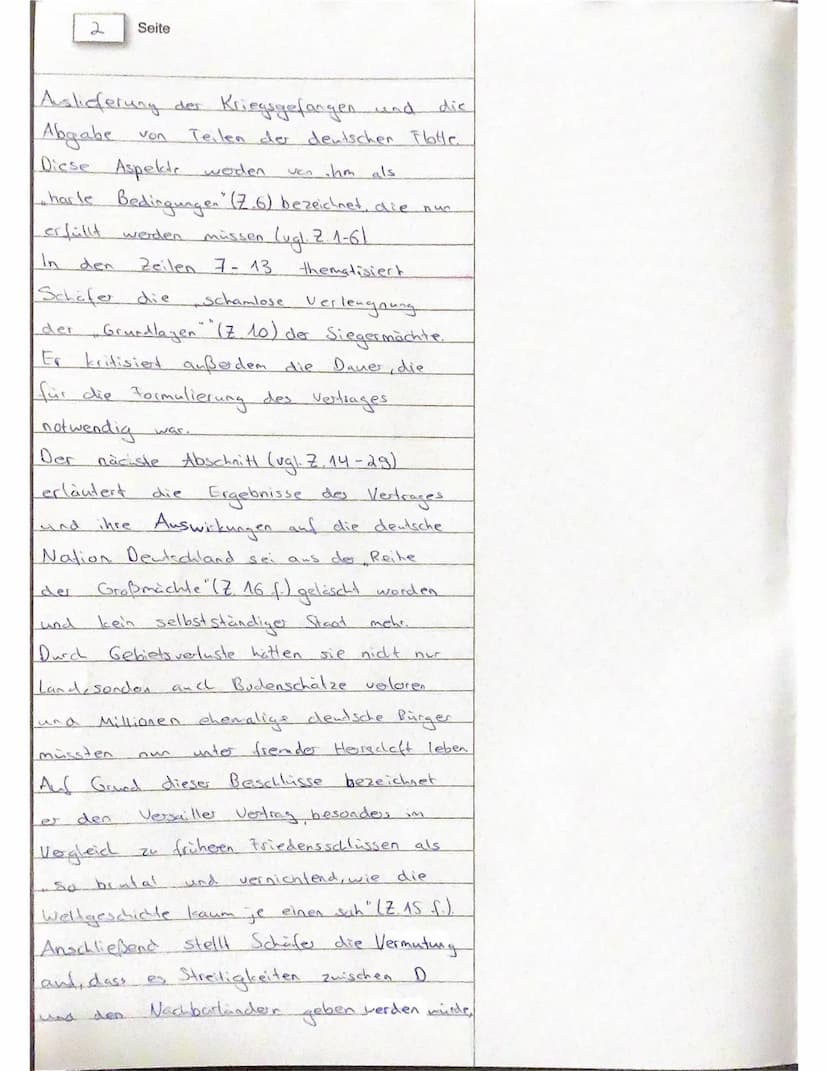 2 Seite
Auslieferung der Kriegsgefangen und die
Abgabe von Teilen der deutschen Flotte.
Diese Aspekte werden von ihm als
„harte Bedingungen" (Z.6) bezeichnet, die nun
erfüllt werden müssen (vgl. Z. 1-6)
In den Zeilen 7-13 thematisiert
Schäfer die „schamlose Verleugnung
der „Grundlagen"" (Z. 10) der Siegermächte.
Er kritisiert außerdem die Dauer, die
für die Formulierung des Vertrages
notwendig war.
Der nächste Abschnitt (vgl. Z. 14-29)
erläutert die Ergebnisse des Vertrages
und ihre Auswirkungen auf die deutsche
Nation Deutschland sei aus der „Reihe
der Großmächte" (Z. 16 f.) gelöscht worden
und kein selbstständiger Staat mehr.
Durch Gebietsverluste hätten sie nicht nur
Land, sondern auch Bodenschätze verloren
und Millionen ehemalige deutsche Bürger
müssten nun unter fremder Herrschaft leben
Auf Grund dieser Beschlüsse bezeichnet
er den Versailler Vertrag, besonders im
Vergleich zu früheren Friedensschlüssen als
„so brutal und vernichtend, wie die
Weltgeschichte kaum je einen sah" (Z. 15 f.).
Anschließend stellt Schäfer die Vermutung
auf, dass es Streitigkeiten zwischen D
und den Nachbarländern geben werden würde,